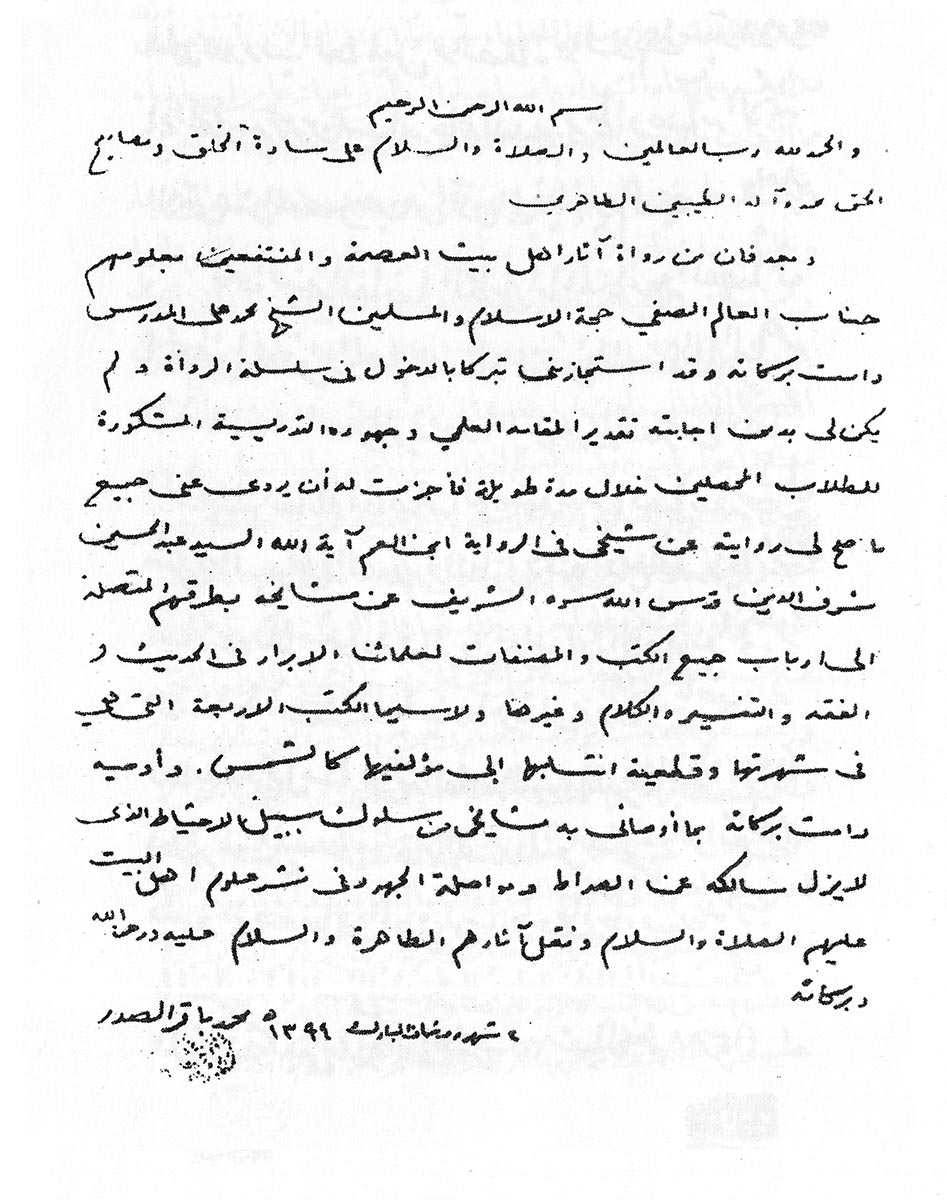 بسم الله الرحمن الرحيم
والحمد لله رب العالمين والصلاة والسلام على سادة الخلق ومصابيح
الحق محمد وآله الطيبين الطاهرين
وبعد فان من رواة آثار اهل بيت العصمة والمنتفعين بعلومهم
جناب العالم الصفي حجة الاسلام والمسلمين الشيخ محمد علي المدرس
دامت بركاته وقد استجازني تبركا بالدخول في سلسلة الرواة ولم
يكن لي بد من اجابته تقديرا لمقامه العلمي وجهوده التدريسية المشكورة
للطلاب المحصلين خلال مدة طويلة فأجزت له أن يروي عني جميع
ما صح لي روايته عن شيخي في الرواية ابن العم آية الله السيد عبد الحسين
شرف الدين قدس الله سره الشريف عن مشايخه بطرقهم المتصلة
الى ارباب جميع الكتب والمصنفات لعلمائنا الابرار في الحديث و
الفقه والتفسير والكلام وغيرها ولاسيما الكتب الاربعة التي هي
في شهرتها وقطعية انتسابها إلى مؤلفيها كالشمس. وأوصيه
دامت بركاته بما أوصاني به مشايخي من سلوك سبيل الاحتياط الذي
لايزل سالكه عن الصراط ومواصلة الجهود في نشر علوم اهل البيت
عليهم الصلاة والسلام ونقل آثارهم الطاهرة والسلام عليه ورحمة الله
وبركاته
٢ شهر رمضان المبارك ١٣٩٩ه محمد باقر الصدر